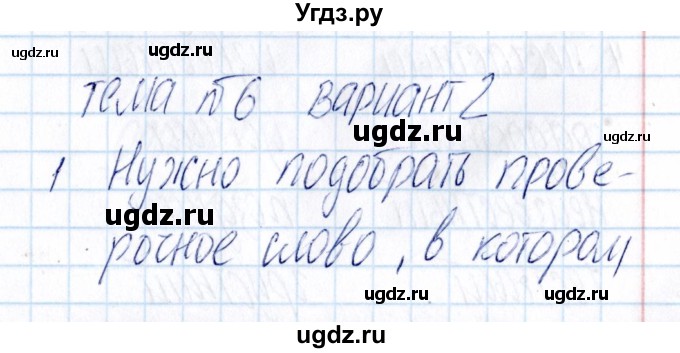 Угдз.ру
ugdz.ru ugdz.ru ugdz.ru
тема №6 вариант 2
ugdz.ru ugdz.ru
1 Нужно подобрать прове-
ugdz.ru ugdz.ru
рочное слово, в котором
ugdz.ru ugdz.ru
ugdz.ru